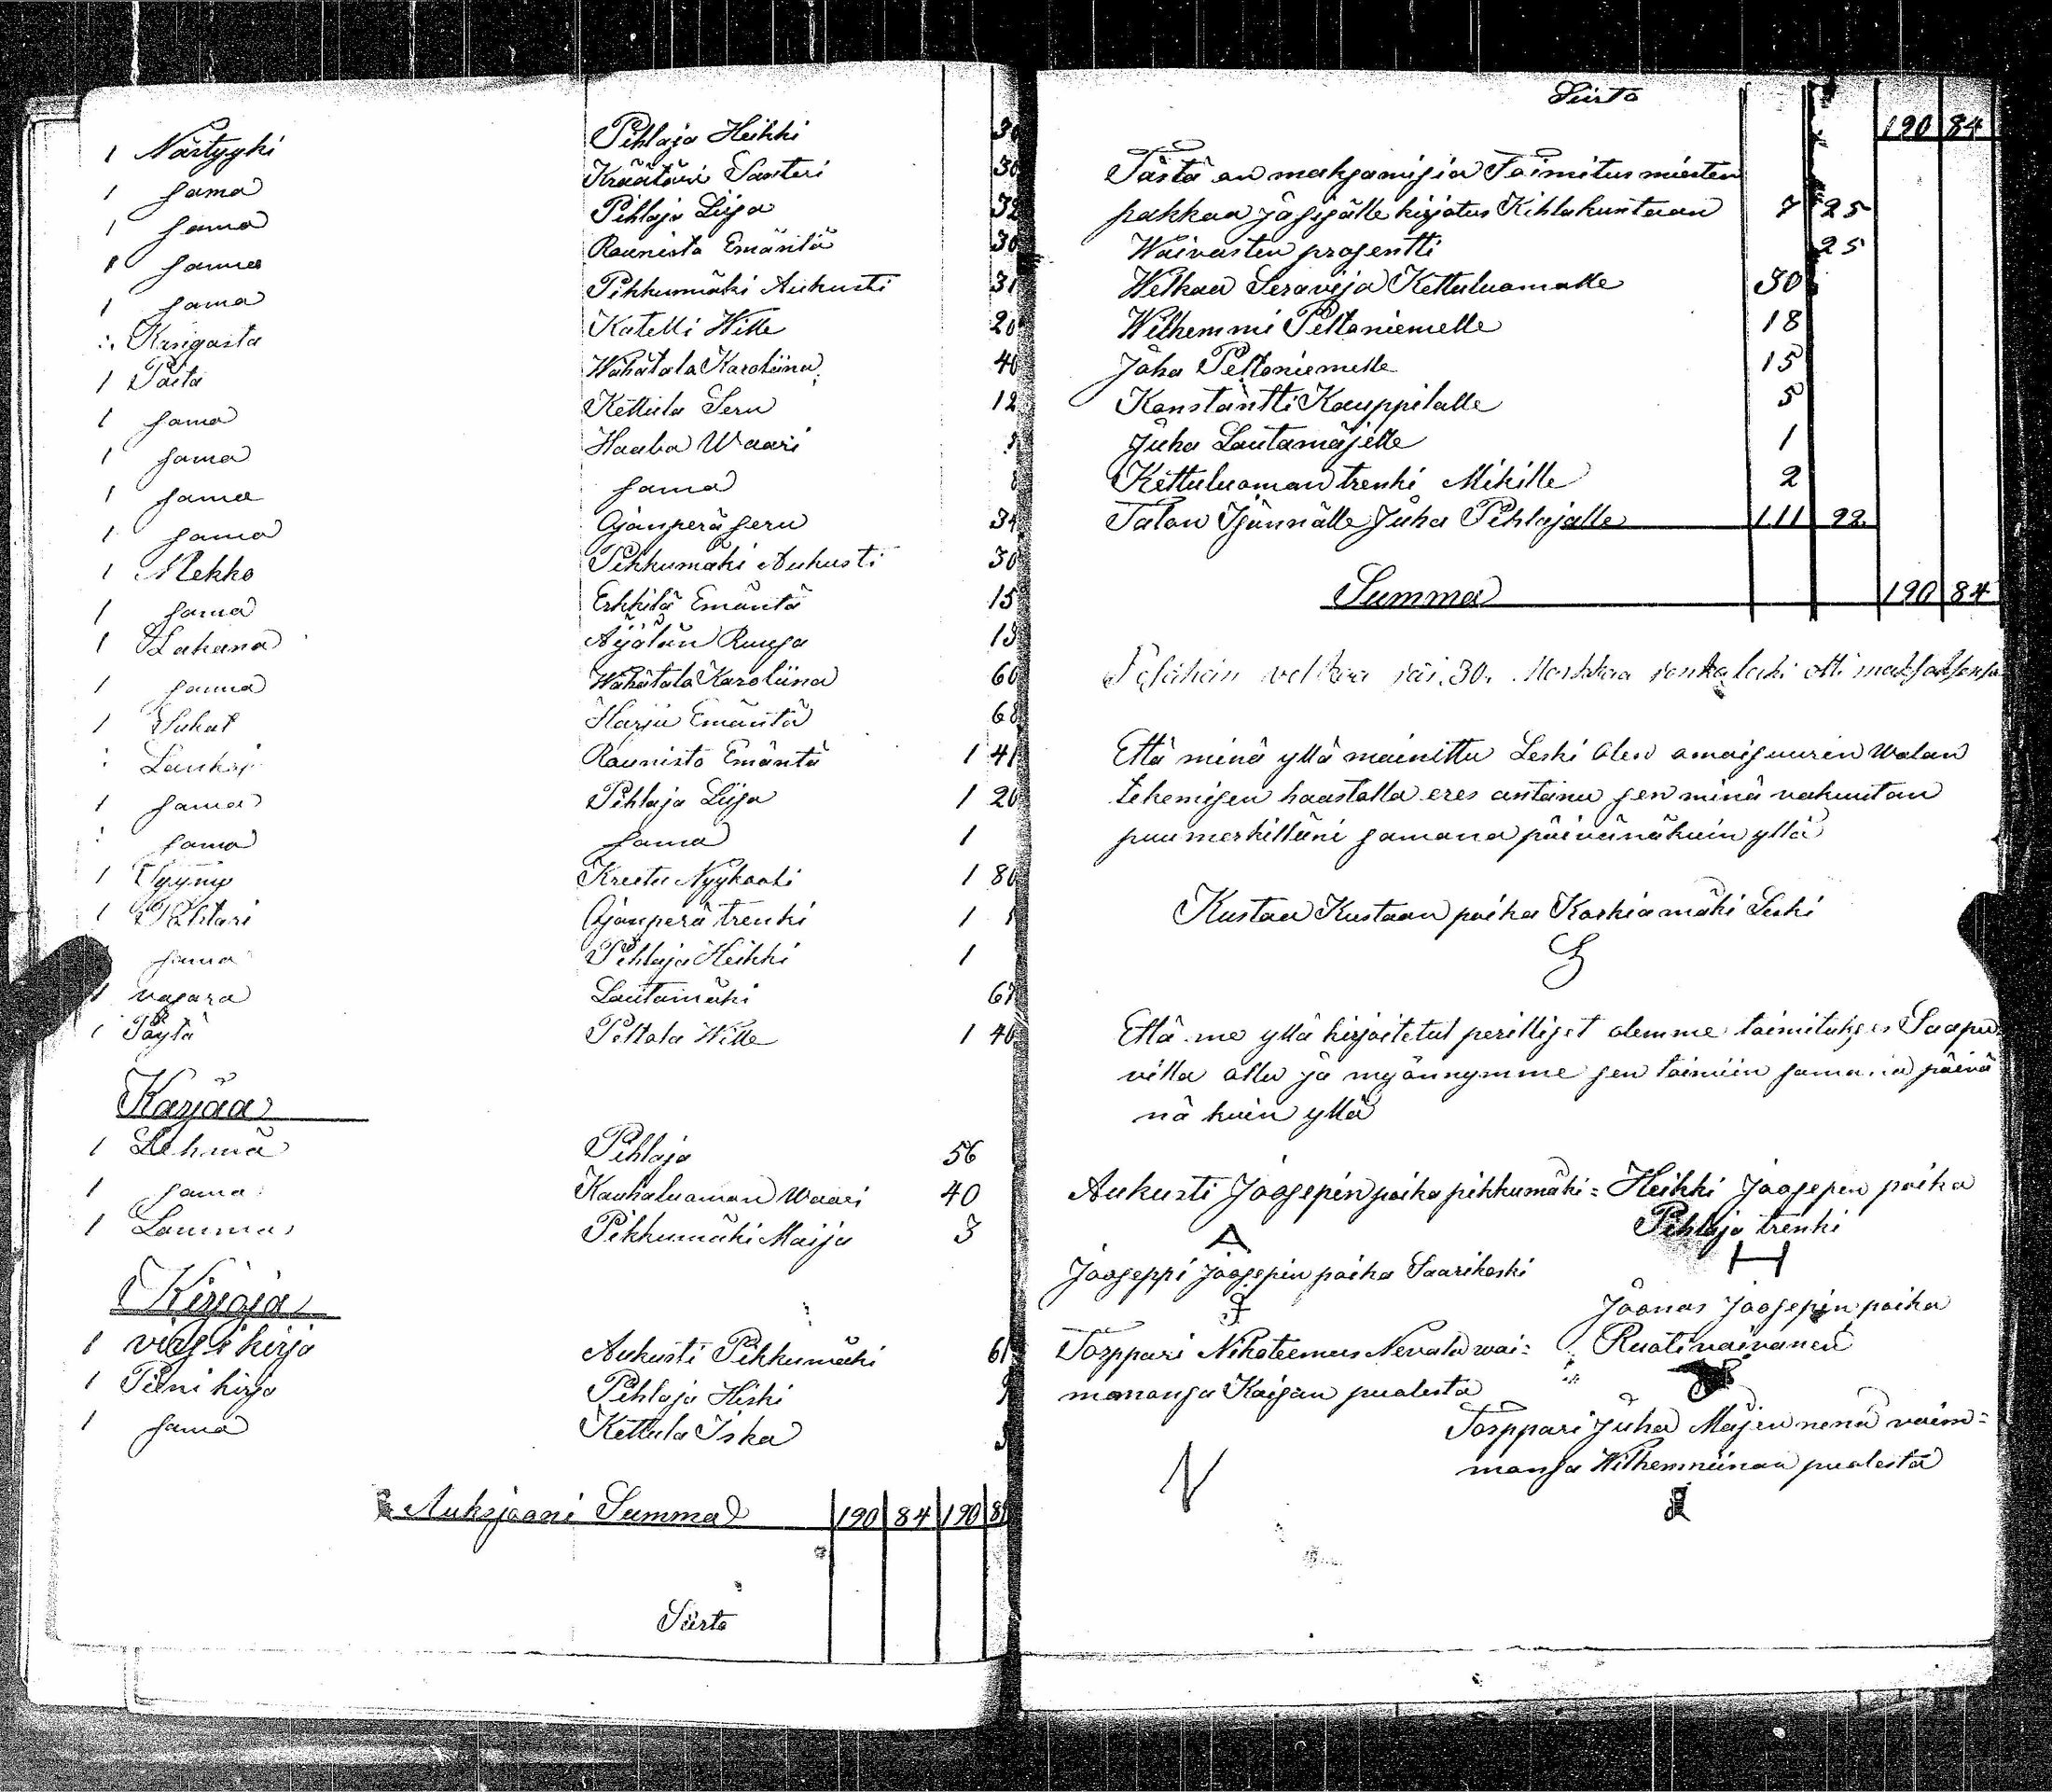 1 Nästyyki Pihlaja Heikki 30
1 sama Kräätäri Santeri 30
1 sama Pihlaja Liisa 32
1 sama Raunisto Emäntä 30
1 sama Pikkumäki Aukusti 31
Kangasta Katelli Wille 20
1 Paita Wähätalo Karoliina 40
1 sama Kettula Seru 12
1 sama Haaba Waari
1 sama sama
1 sama Ojanperä seru 34
1 Mekko Pikkumäki Aukusti 30
1 sama Erkkilä Emäntä 15
1 Lakana Äijälän Ruusa 13
1 sama Wähätalo Karoliina 60
1 Sukat Harju Emäntä 68
Raunisto Emäntä 1 41
1 sama Pihlaja Liisa 1 20
sama sama 1
1 Tyyny Kreeta Nyykooki 1 80
1 Ojanperä trenki 1
sama Pihlaja Heikki 1
1 vasara Lautamäki 67
1 Pöytä Peltola Wille 1 40
Karjaa
1 Lehmä Pihlaja 56
1 sama Kauhaluoman Waari 40
1 Lammas Pikkumäki Maija 3
Kirjoja
1 virsi kirja Aukusti Pikkumäki 61
1 Pieni kirja Pihlaja Hiski
1 sama Kettula Iska
Auksjooni Summa 190 84 190 84
Siirto
Siirto
190 84
Tästä on maksamisia Toimitus miesten
palkkaa ja sisälle kirjotus Kihlakuntaan 7 25
Waivasten prosentti 25
Welkaa Seravija Kettuluomalle 30
Wilhemmi Peltoniemelle 18
Joha Peltoniemelle 15
Konstantti Kauppilalle 5
Juha Lautamäjelle 1
Kettuluoman trenki Mikille 2
Talon Isännälle Juha Pihlajalle 111 92
Summa 190 84
velkaa jäi 30. Markkaa jonka leski otti maksaaksensa
Että minä yllä mainittu Leski olen omaisuuren walan
tekemisen haastolla eres antanu sen minä vakuutan
puumerkilläni samana päivänä kuin yllä
Kustaa Kustaan poika Koskiamäki Leski
Että me yllä kirjoitetut perilliset olemme toimituksen Saapu
villa ollu ja myönnymme sen toimiin samana päivä
nä kuin yllä
Aukusti Joosepin poika pikkumäki = Heikki Joosepin poika
Pihlaja trenki
A H
Jooseppi Joosepin poika Saarikoski
Joonas Joosepin poika
Torppari Nikoteemus Nevala wai= Ruotivaivanen
monansa Kaisan puolesta
Torppari Juha Mäjen nenä vaim=
monsa Wilhemmiinan puolesta
N